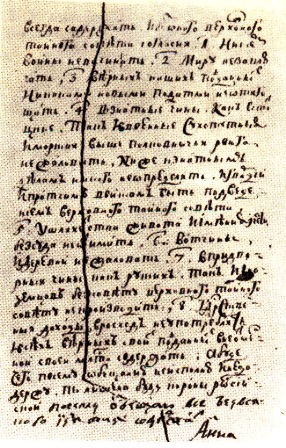 всегда садержать. и безоного верховного
тайного совѣта согласия. 1. нискѣмъ
войны невсчинать. 2. миру незаклю
чать. 3. верныхъ нашихъ подданыхъ
никакими новыми податми неотяго
щать. 4. взнатные чины, какъ встат
цкие, такъ ивоенные сухопутныя
иморския выше полковничья ранга
нежаловать. ниже кзнатнымъ
деламъ никого неопределять. игвардиі
ипротчимъ войскамъ быть подведе
ниемъ верховного тайного совѣта
5. ушляхетства живота иимѣния
безсуда неотымать. 6. вотчины
идеревни нежаловать. 7. впридво
рныя чины какъ рускихъ, такъ іино
земцовъ безсовѣту верховного тайного
совѣта непроизводить. 8.
доходы врасходъ неупотреблять
ивсехъ верныхъ своихъ поданныхъ внеотмѣ
ной своей милости содержать. Абуде
чего посему обещанию неисполню
держу, то лишена буду короны росиі
ской посему обещаю все безвся
кого содержать
Анна